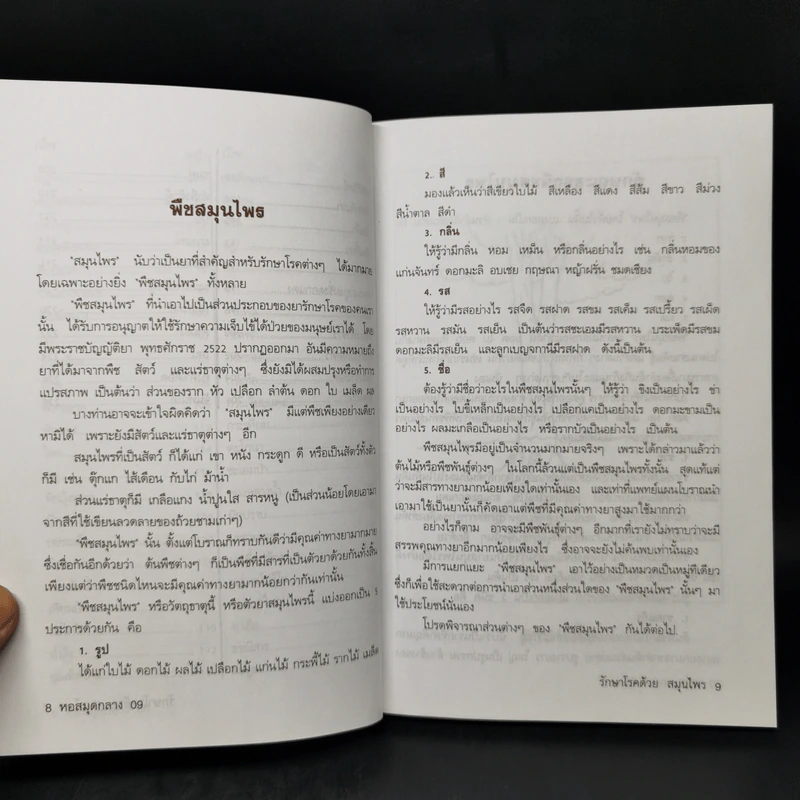 พืชสมุนไพร
"สมุนไพร" นับว่าเป็นยาที่สำคัญสำหรับรักษาโรคต่างๆ ได้มากมาย
โดยเฉพาะอย่างยิ่ง "พืชสมุนไพร" ทั้งหลาย
"พืชสมุนไพร" ที่นำเอาไปเป็นส่วนประกอบของยารักษาโรคของคนเรา
นั้น ได้รับการอนุญาตให้ใช้รักษาความเจ็บไข้ได้ป่วยของมนุษย์เราได้ โดย
มีพระราชบัญญัติยา พุทธศักราช 2522 ปรากฏออกมา อันมีความหมายถึง
ยาที่ได้มาจากพืช สัตว์ และแร่ธาตุต่างๆ ซึ่งยังมิได้ผสมปรุงหรือทำการ
แปรสภาพ เป็นต้นว่า ส่วนของราก หัว เปลือก ลำต้น ดอก ใบ เมล็ด ผล
บางท่านอาจจะเข้าใจผิดคิดว่า "สมุนไพร" มีแต่พืชเพียงอย่างเดียว
หามิได้ เพราะยังมีสัตว์และแร่ธาตุต่างๆ อีก
สมุนไพรที่เป็นสัตว์ ก็ได้แก่ เขา หนัง กระดูก ดี หรือเป็นสัตว์ทั้งตัว
ก็มี เช่น ตุ๊กแก ไส้เดือน กับไก่ ม้าน้ำ
ส่วนแร่ธาตุก็มี เกลือแกง น้ำปูนใส สารหนู (เป็นส่วนน้อยโดยเอามา
จากสีที่ใช้เขียนลวดลายของถ้วยชามเก่าๆ)
"พืชสมุนไพร" นั้น ตั้งแต่โบราณก็ทราบกันดีว่ามีคุณค่าทางยามากมาย
ซึ่งเชื่อกันอีกด้วยว่า ต้นพืชต่างๆ ก็เป็นพืชที่มีสารที่เป็นตัวยาด้วยกันทั้งสิ้น
เพียงแต่ว่าพืชชนิดไหนจะมีคุณค่าทางยามากน้อยกว่ากันเท่านั้น
"พืชสมุนไพร" หรือวัตถุธาตุนี้ หรือตัวยาสมุนไพรนี้ แบ่งออกเป็น 5
ประการด้วยกัน คือ
1. รูป
ได้แก่ใบไม้ ดอกไม้ ผลไม้ เปลือกไม้ แก่นไม้ กระพี้ไม้ รากไม้ เมล็ด
8 หอสมุดกลาง 09
2. สี
มองแล้วเห็นว่าสีเขียวใบไม้ สีเหลือง สีแดง สีส้ม สีขาว สีม่วง
สีน้ำตาล สีดำ
3. กลิ่น
ให้รู้ว่ามีกลิ่น หอม เหม็น หรือกลิ่นอย่างไร เช่น กลิ่นหอมของ
แก่นจันทร์ ดอกมะลิ อบเชย กฤษณา หญ้าฝรั่น ชมดเชียง
4. รส
ให้รู้ว่ามีรสอย่างไร รสจืด รสฝาด รสขม รสเค็ม รสเปรี้ยว รสเผ็ด
รสหวาน รสมัน รสเย็น เป็นต้นว่ารสชะเอมมีรสหวาน บระเพ็ดมีรสขม
ดอกมะลิมีรสเย็น และลูกเบญจกานีมีรสฝาด ดังนี้เป็นต้น
5. ชื่อ
ต้องรู้ว่ามีชื่อว่าอะไรในพืชสมุนไพรนั้นๆ ให้รู้ว่า ขิงเป็นอย่างไร ข่า
เป็นอย่างไร ใบขี้เหล็กเป็นอย่างไร เปลือกแคเป็นอย่างไร ดอกมะขามเป็น
อย่างไร ผลมะเกลือเป็นอย่างไร หรือรากบัวเป็นอย่างไร เป็นต้น
พืชสมุนไพรมีอยู่เป็นจำนวนมากมายจริงๆ เพราะได้กล่าวมาแล้วว่า
ต้นไม้หรือพืชพันธุ์ต่างๆ ในโลกนี้ล้วนแต่เป็นพืชสมุนไพรทั้งนั้น สุดแท้แต่
ว่าจะมีสารทางยามากน้อยเพียงใดเท่านั้นเอง และเท่าที่แพทย์แผนโบราณนำ
เอามาใช้เป็นยานั้นก็คัดเอาแต่พืชที่มีคุณค่าทางยาสูงมาใช้มากกว่า
อย่างไรก็ตาม อาจจะมีพืชพันธุ์ต่างๆ อีกมากที่เรายังไม่ทราบว่าจะมี
สรรพคุณทางยาอีกมากน้อยเพียงไร ซึ่งอาจจะยังไม่ค้นพบเท่านั้นเอง
มีการแยกแยะ "พืชสมุนไพร" เอาไว้อย่างเป็นหมวดเป็นหมู่ทีเดียว
ซึ่งก็เพื่อใช้สะดวกต่อการนำเอาส่วนหนึ่งส่วนใดของ "พืชสมุนไพร" นั้นๆ มา
ใช้ประโยชน์นั่นเอง
โปรดพิจารณาส่วนต่างๆ ของ "พืชสมุนไพร" กันได้ต่อไป.
รักษาโรคด้วย สมุนไพร 9